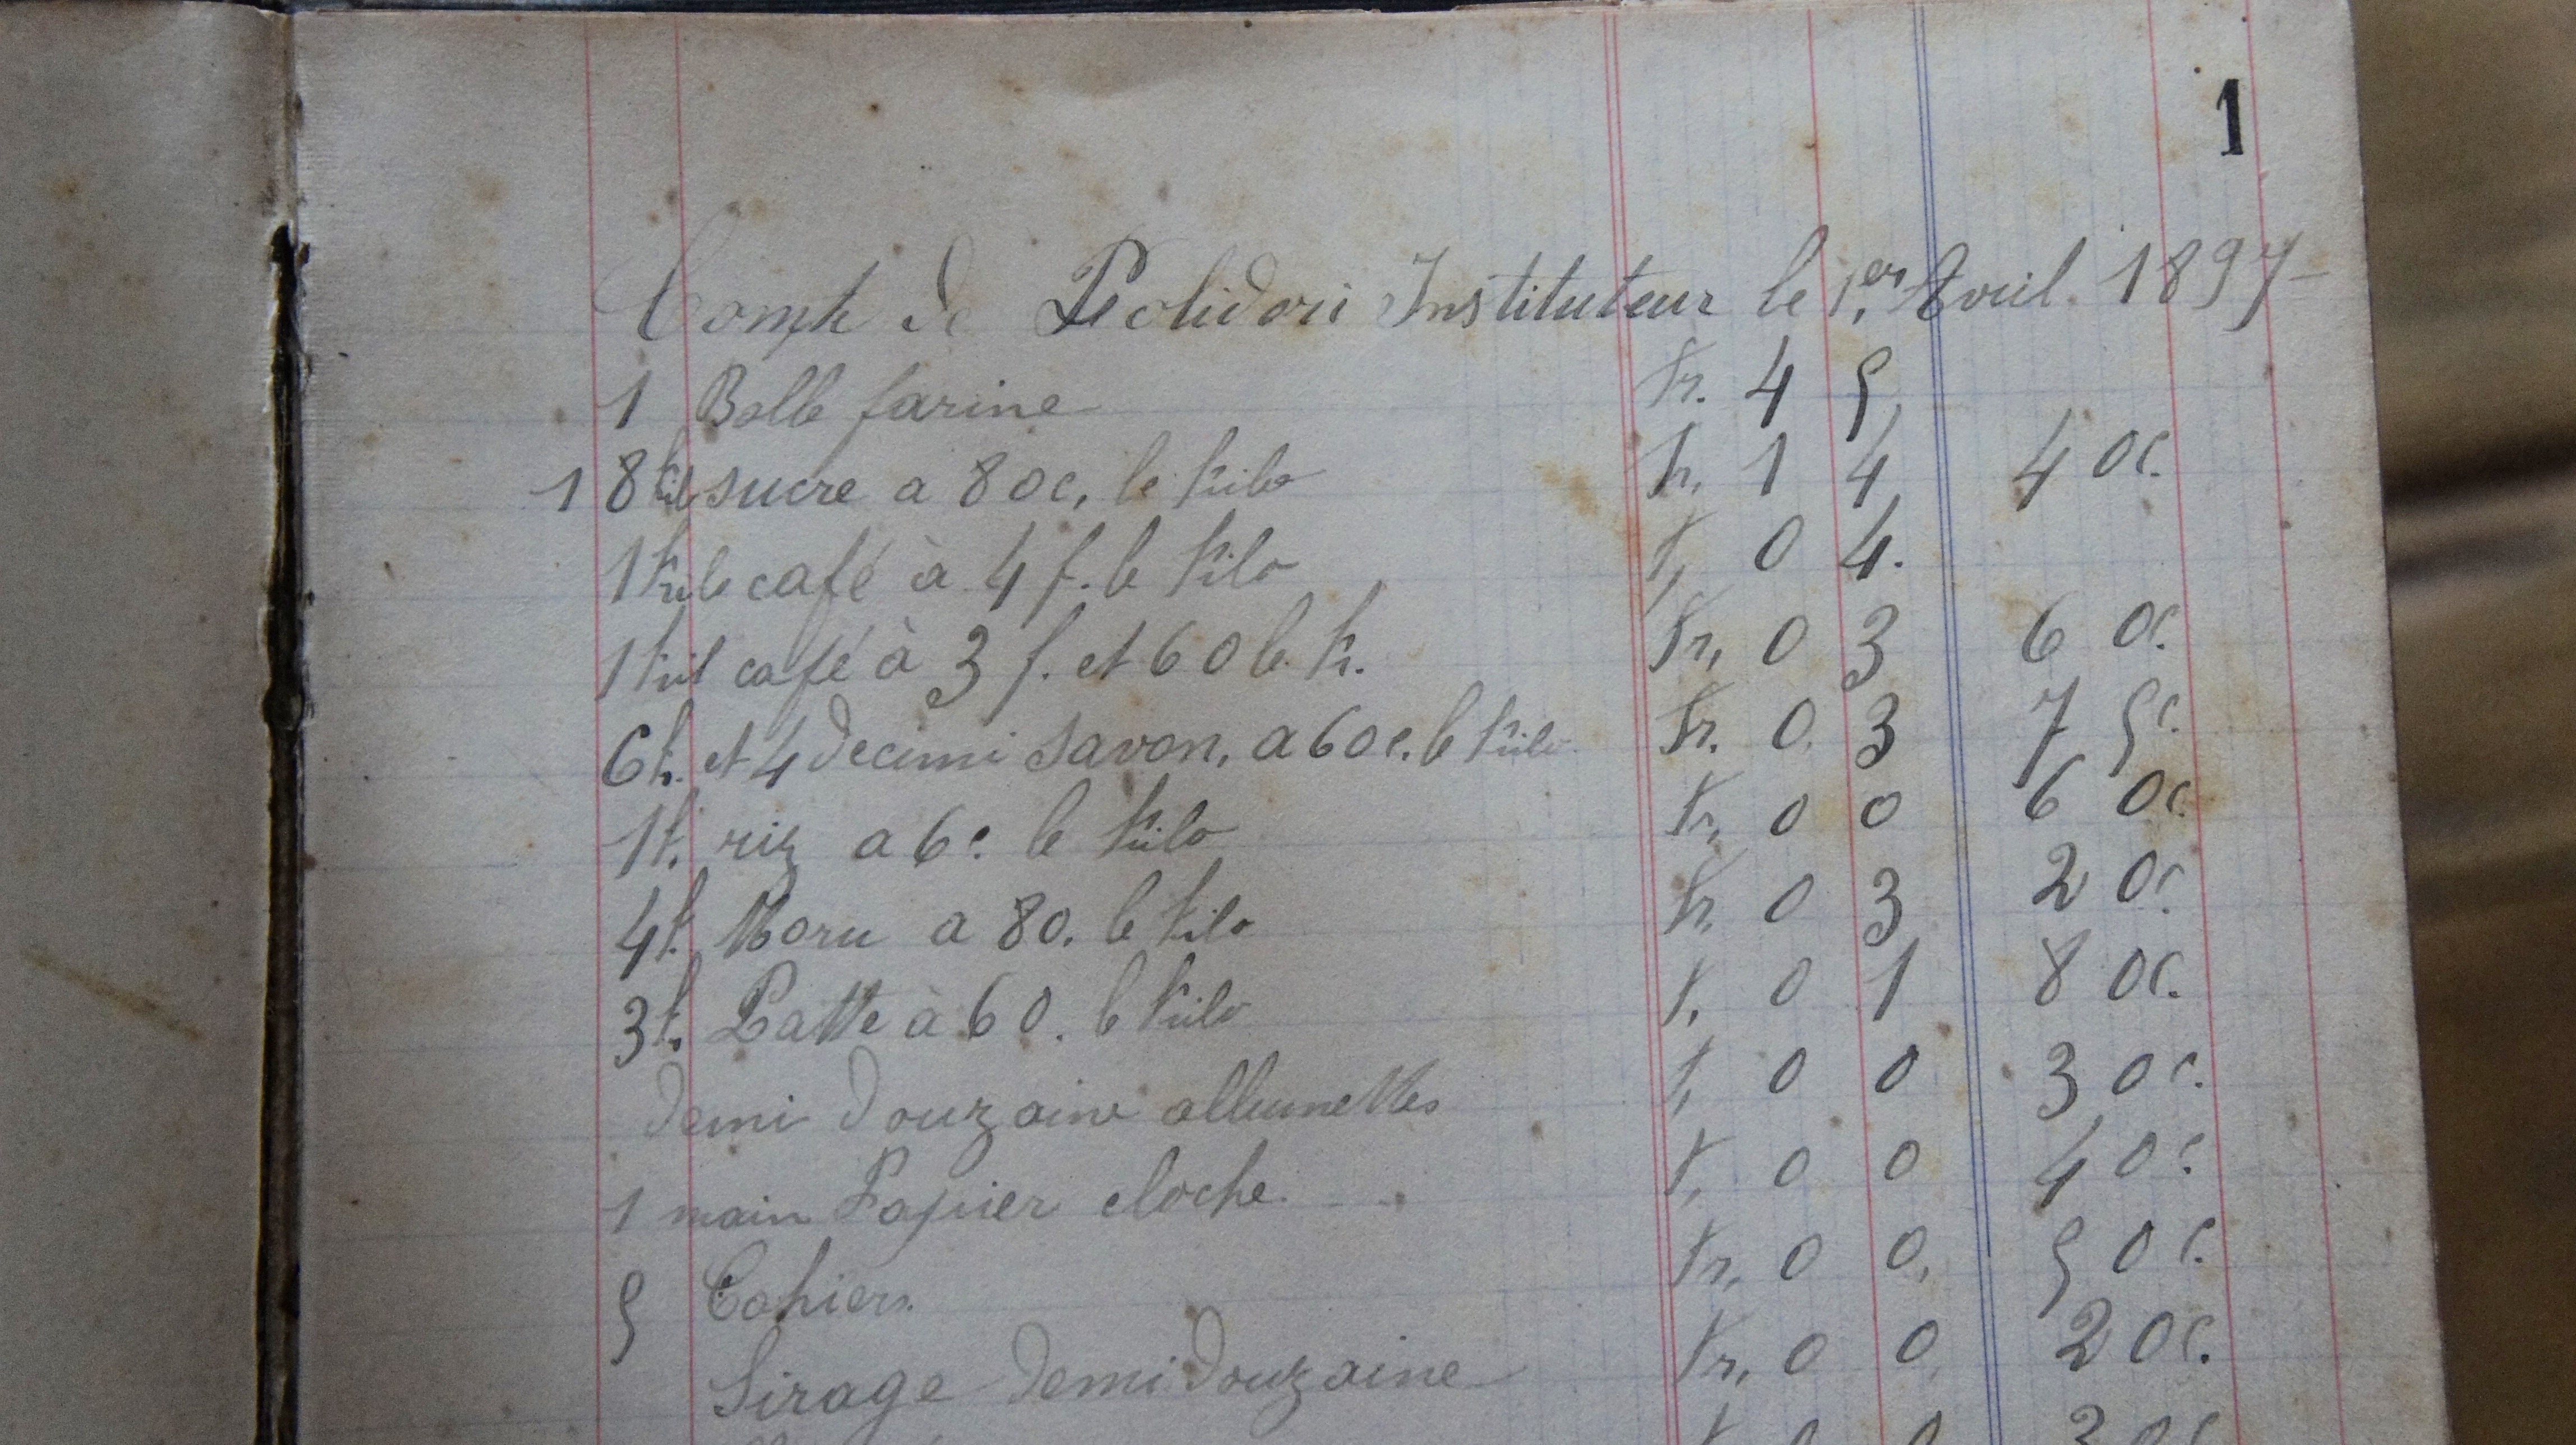 1
Compte de Polidori Instituteur le 1er, Avril 1897
1 Balle farine fr. 4 5,
18 kil sucre a 80c, le kilo fr, 1 4, 40c.
1 kilo café à 4 f. le kilo f, 0 4.
1 kil café à 3 f. et 60 le k. fr, 0 3 60c.
6k. et 4 decimi savon, a 60c. le kilo fr. 0. 3 75c.
1k. riz a 6c. le kilo fr, 0 0 60c.
4k. Moru a 80. le kilo fr. 0 3 20c.
3k. Patte à 60. le kilo f. 0 1 80c.
demi douzaine allumettes f, 0 0 30c.
1 main Papier cloche. f, 0 0 40c.
5 Cahiers. fr. 0 0, 50c.
Sirage demi douzaine fr, 0 0, 20c.